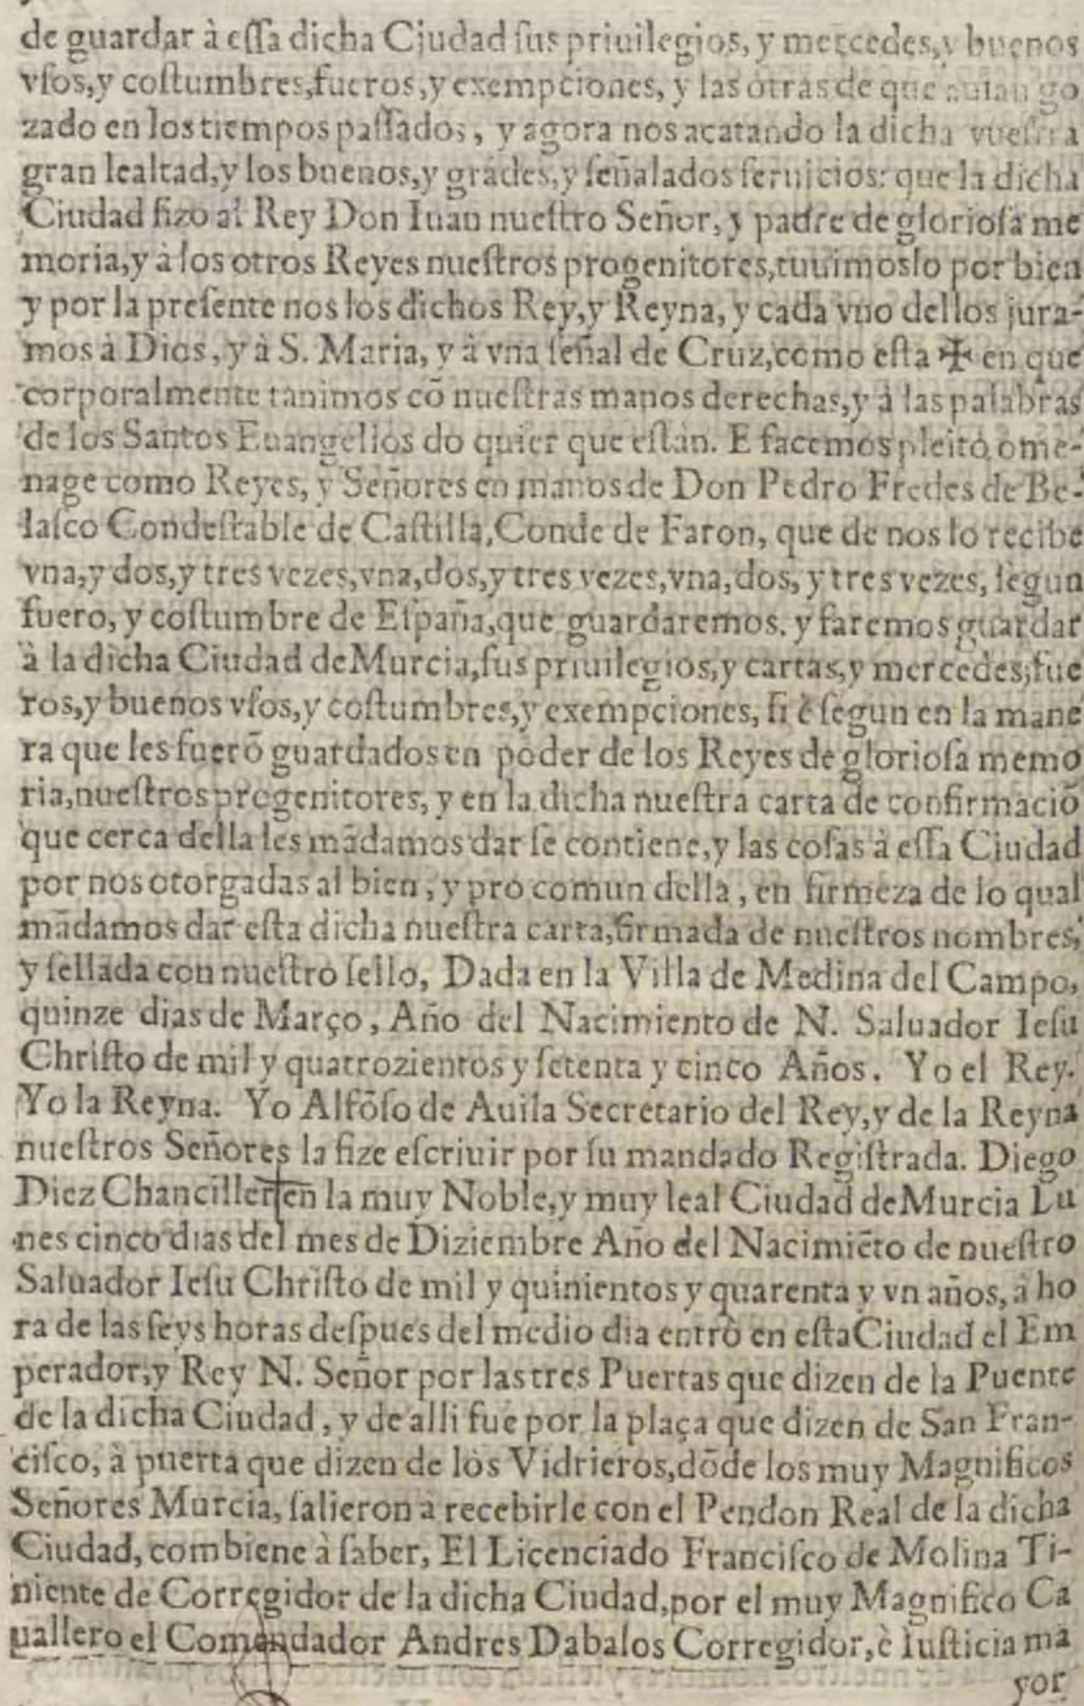 de guardar à eſſa dicha Ciudad ſus priuilegios, y mercedes, y buenos
vſos, y coſtumbres, fueros, y exempciones, y las otras de que auian go
zado en los tiempos paſſados, y agora nos acatando la dicha vueſtra
gran lealtad, y los buenos, y grādes, y ſeñalados ſeruicios: que la dicha
Ciudad fizo al Rey Don Iuan nueſtro Señor, y padre de glorioſa me
moria, y à los otros Reyes nueſtros progenitores, tuuimoslo por bien
y por la preſente nos los dichos Rey, y Reyna, y cada vno dellos jura-
mos à Dios, y à S. Maria, y à vna ſeñal de Cruz, como eſta ✠ en que
corporalmente tanimos cō nueſtras manos derechas, y à las palabras
de los Santos Euangelios do quier que eſtàn. E facemos pleito ome-
nage como Reyes, y Señores en manos de Don Pedro Fredes de Be-
laſco Condeſtable de Caſtilla, Conde de Faron, que de nos lo recibe
vna, y dos, y tres vezes, vna, dos, y tres vezes, vna, dos, y tres vezes, ſegun
fuero, y coſtumbre de Eſpaña, que guardaremos, y faremos guardar
à la dicha Ciudad de Murcia, ſus priuilegios, y cartas, y mercedes, fue
ros, y buenos vſos, y coſtumbres, y exempciones, ſi è ſegun en la mane
ra que les fuerō guardados en poder de los Reyes de glorioſa memo
ria, nueſtros progenitores, y en la dicha nueſtra carta de confirmaciō
que cerca della les mādamos dar ſe contiene, y las coſas à eſſa Ciudad
por nos otorgadas al bien, y pro comun della, en firmeza de lo qual
mādamos dar eſta dicha nueſtra carta, firmada de nueſtros nombres,
y ſellada con nueſtro ſello, Dada en la Villa de Medina del Campo,
quinze dias de Março, Año del Nacimiento de N. Saluador Ieſu
Chriſto de mil y quatrozientos y ſetenta y cinco Años. Yo el Rey.
Yo la Reyna. Yo Alfōſo de Auila Secretario del Rey, y de la Reyna
nueſtros Señores la fize eſcriuir por ſu mandado Regiſtrada. Diego
Diez Chanciller en la muy Noble, y muy leal Ciudad de Murcia Lu
nes cinco dias del mes de Diziembre Año del Nacimiēto de nueſtro
Saluador Ieſu Chriſto de mil y quinientos y quarenta y vn años, à ho
ra de las ſeys horas deſpues del medio dia entrò en eſta Ciudad el Em
perador, y Rey N. Señor por las tres Puertas que dizen de la Puente
de la dicha Ciudad, y de alli fue por la plaça que dizen de San Fran-
ciſco, à puerta que dizen de los Vidrieros, dōde los muy Magnificos
Señores Murcia, ſalieron à recebirle con el Pendon Real de la dicha
Ciudad, combiene à ſaber, El Licenciado Franciſco de Molina Ti-
niente de Corregidor de la dicha Ciudad, por el muy Magnifico Ca
uallero el Comendador Andres Dabalos Corregidor, è Iuſticia ma
yor